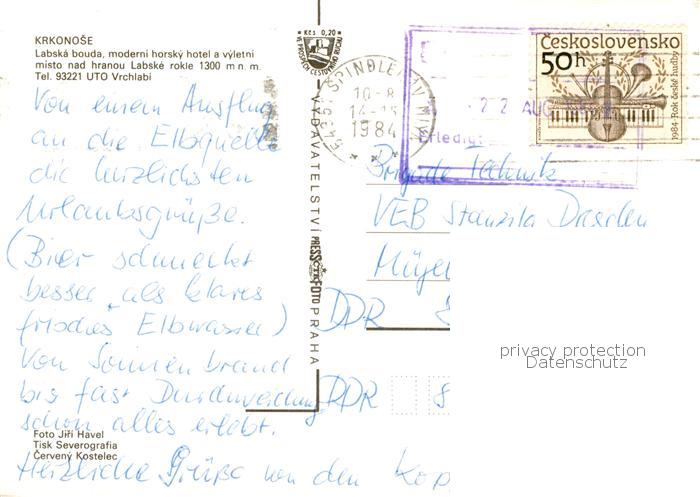 KRKONOŠE
Labská bouda, moderní horský hotel a výletní
místo nad hranou Labské rokle 1300 m n. m.
Tel. 93221 UTO Vrchlabí
Von einem Ausflug
an die Elbquelle
die herzlichsten
Urlaubsgrüße.
(Bier schmeckt
besser als klares
frisches Elbwasser)
Von Sonnenbrand
bis fast Durchweichung
schon alles erlebt.
Herzliche Grüße von den
Foto Jiří Havel
Tisk Severografia
Červený Kostelec
Kčs 0,20
VE PROSPĚCH CESTOVNÍHO RUCHU
VYDAVATELSTVÍ PRESSFOTO PRAHA
543 51 ŠPINDLERŮV MLÝN
10.-8.
14-15
1984
22. AUG.
Erledigt
Československo
50h
1984 Rok české hudby
Brigade Technik
VEB Stanzila Dresden
Mügel
DDR 8
DDR 8
privacy protection
Datenschutz